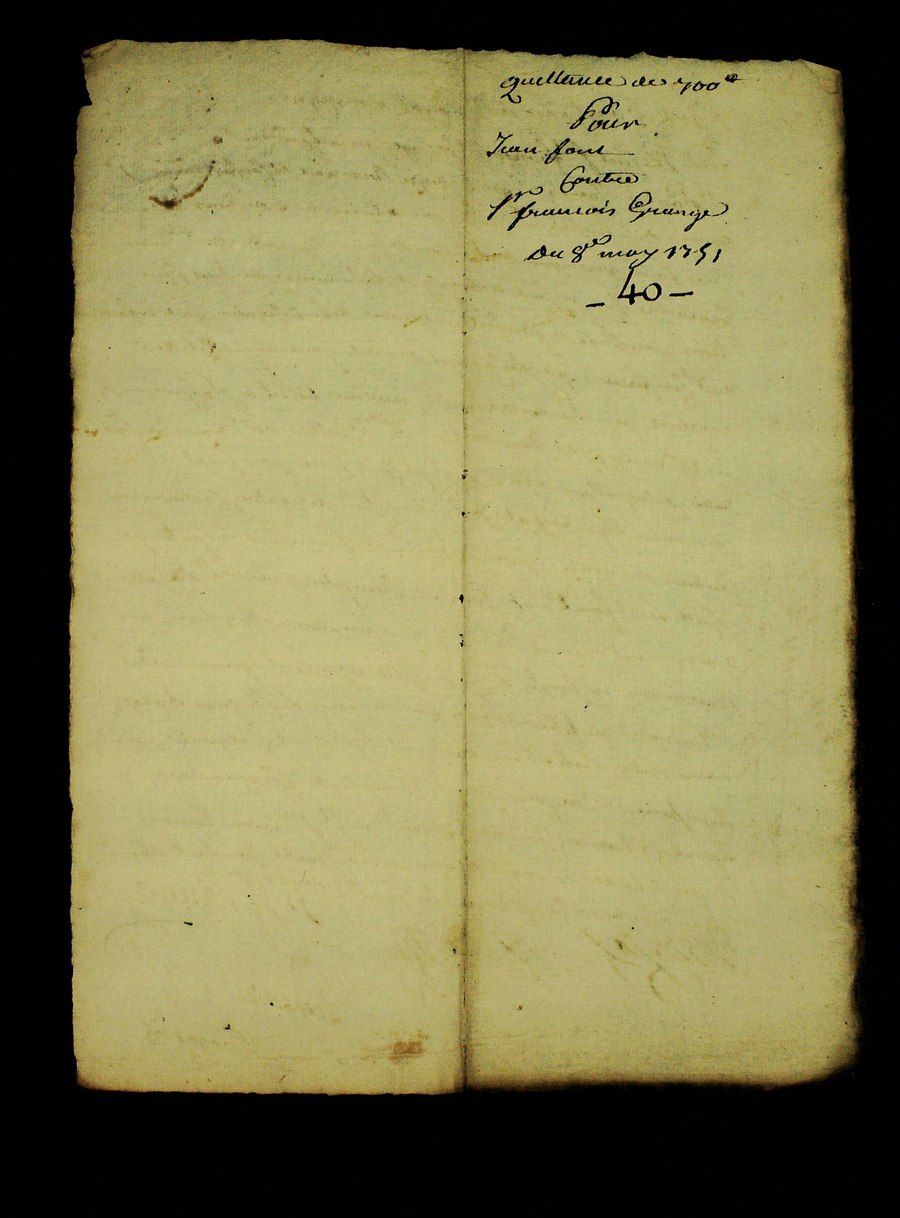 Quittance de 700tt
Pour
Jean font
Contre
Sr francois Grange
Du 8e may 1751
- 40 -